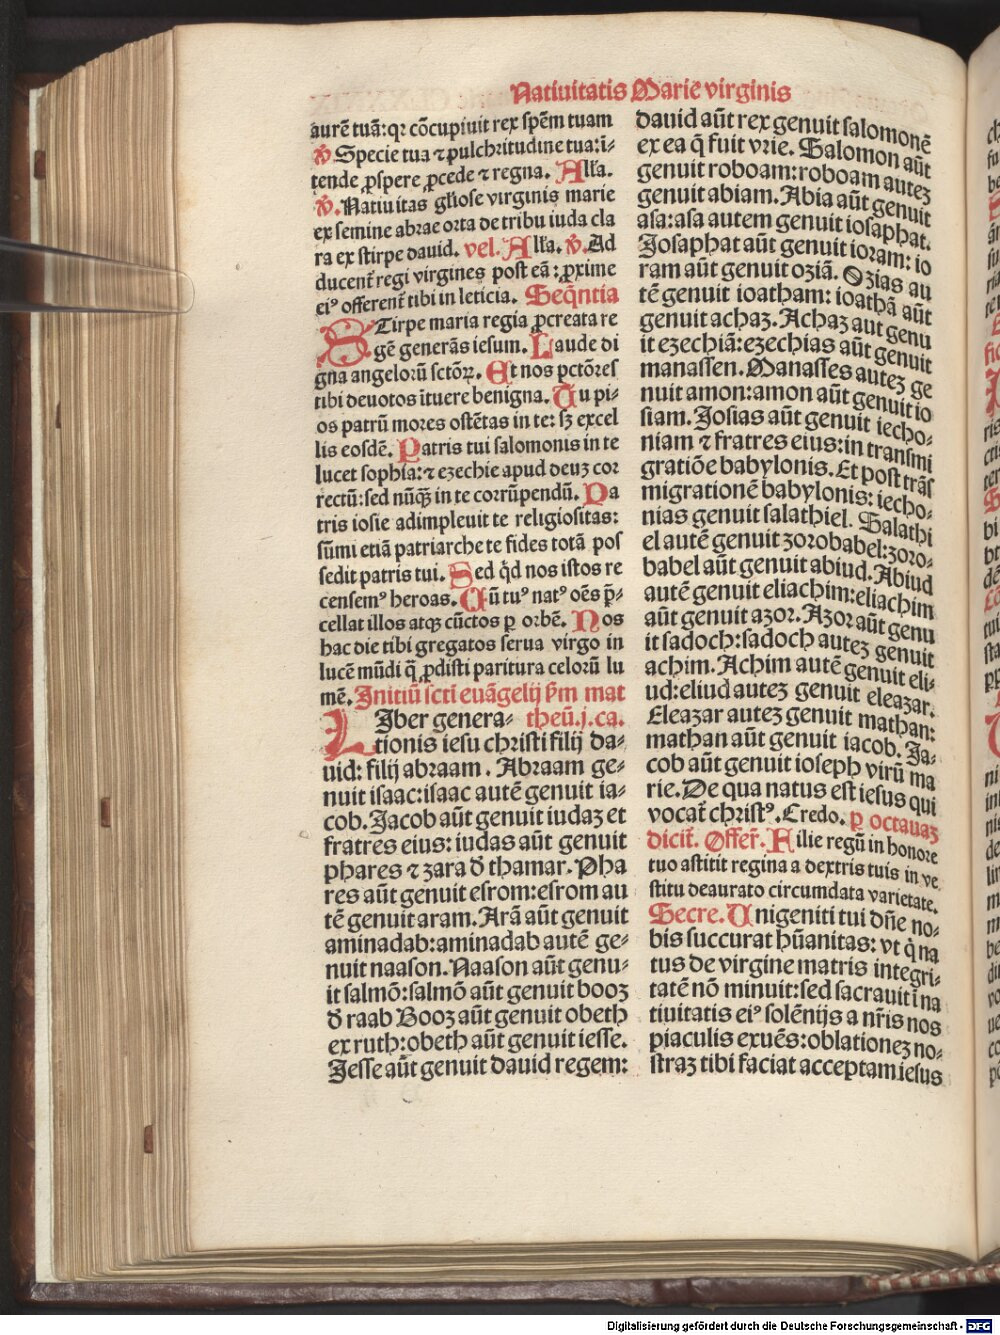 Natiuitatis Marie virginis
aurē tuā: qꝛ cōcupiuit rex spēm tuam
℣ Specie tua ⁊ pulchritudine tua: ī-
tende ꝓspere ꝓcede ⁊ regna. Alla.
℣. Natiuitas gl̄iose virginis marie
ex semine abrae orta de tribu iuda cla
ra ex stirpe dauid. vel. Alla. ℣. Ad
ducent̄ regi virgines post eā: ꝓxime
eiꝰ offerent̄ tibi in leticia. Seq̄ntia
STirpe maria regia ꝓcreata re
gē generās iesum. Laude di
gna angeloꝛū sctōꝝ. Et nos pctōres
tibi deuotos ītuere benigna. Tu pi-
os patrū mores ostētas in te: sꝫ excel
lis eosdē. Patris tui salomonis in te
lucet sophia: ⁊ ezechie apud deuꝫ cor
rectū: sed nūqꝫ in te corrūpendū. Pa
tris iosie adimpleuit te religiositas:
sūmi etiā patriarche te fides totā pos
sedit patris tui. Sed qd̄ nos istos re
censemꝰ heroas. Cū tuꝰ natꝰ oēs p̄-
cellat illos atqꝫ cūctos ꝑ orbē. Nos
hac die tibi gregatos serua virgo in
lucē mūdi q̄ ꝓdisti paritura celorū lu
mē. Initiū scti euāgelij scd̄m mat
LIber genera- theū. j. ca.
tionis iesu christi filij da-
uid: filij abraam. Abraam ge-
nuit isaac: isaac autē genuit ia-
cob. Jacob aūt genuit iudaꝫ et
fratres eius: iudas aūt genuit
phares ⁊ zara d̄ thamar. Pha
res aūt genuit esrom: esrom au
tē genuit aram. Arā aūt genuit
aminadab: aminadab autē ge-
nuit naason. Naason aūt genu-
it salmō: salmō aūt genuit booz
d̄ raab Booz aūt genuit obeth
ex ruth: obeth aūt genuit iesse.
Jesse aūt genuit dauid regem:
dauid aūt rex genuit salomonē
ex ea q̄ fuit vrie. Salomon aūt
genuit roboam: roboam auteꝫ
genuit abiam. Abia aūt genuit
asa: asa autem genuit iosaphat.
Josaphat aūt genuit ioram: io
ram aūt genuit oziā. Ozias au
tē genuit ioatham: ioathā aūt
genuit achaz. Achaz aut genu
it ezechiā: ezechias aūt genuit
manassen. Manasses auteꝫ ge
nuit amon: amon aūt genuit io
siam. Josias aūt genuit iecho-
niam ⁊ fratres eius: in transmi
gratiōe babylonis. Et post trās
migrationē babylonis: iecho-
nias genuit salathiel. Salathi
el autē genuit zorobabel: zoro-
babel aūt genuit abiud. Abiud
autē genuit eliachim: eliachim
aūt genuit azor. Azor aūt genu
it sadoch: sadoch auteꝫ genuit
achim. Achim autē genuit eli-
ud: eliud auteꝫ genuit eleazar.
Eleazar auteꝫ genuit mathan:
mathan aūt genuit iacob. Ja-
cob aūt genuit ioseph virū ma
rie. De qua natus est iesus qui
vocat̄ christꝰ. Credo. ꝑ octauaꝫ
dicit̄. Offer̄. Filie regū in honore
tuo astitit regina a dextris tuis in ve
stitu deaurato circumdata varietate.
Secre. Unigeniti tui dn̄e no-
bis succurat hūanitas: vt q̄ na
tus de virgine matris integri-
tatē nō minuit: sed sacrauit ī na
tiuitatis eiꝰ solēnijs a nr̄is nos
piaculis exuēs: oblationeꝫ no-
straꝫ tibi faciat acceptam iesus
Digitalisierung gefördert durch die Deutsche Forschungsgemeinschaft - DFG